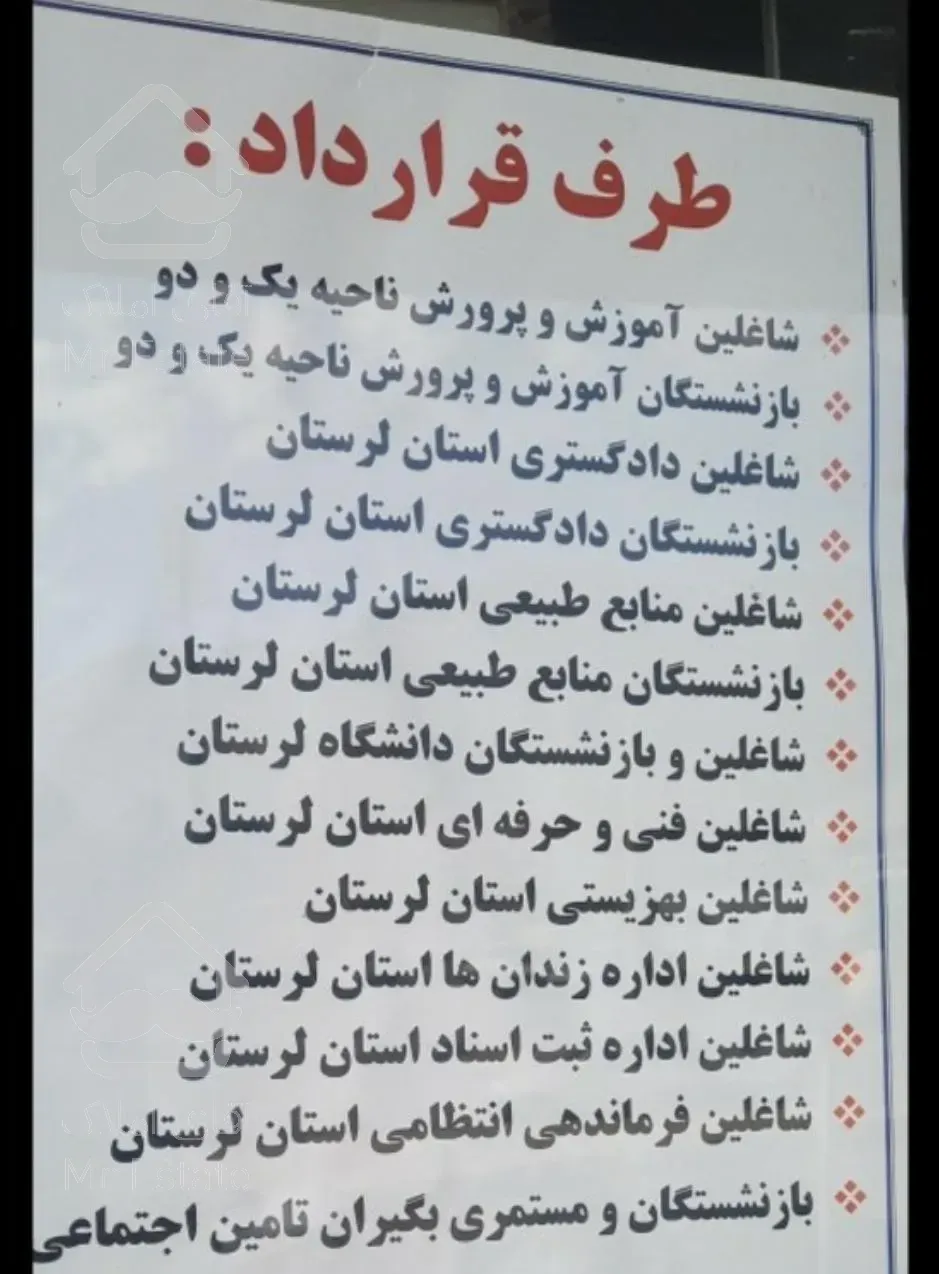 طرف قرارداد :
❖ شاغلین آموزش و پرورش ناحیه یک و دو
❖ بازنشستگان آموزش و پرورش ناحیه یک و دو
❖ شاغلین دادگستری استان لرستان
❖ بازنشستگان دادگستری استان لرستان
❖ شاغلین منابع طبیعی استان لرستان
❖ بازنشستگان منابع طبیعی استان لرستان
❖ شاغلین و بازنشستگان دانشگاه لرستان
❖ شاغلین فنی و حرفه ای استان لرستان
❖ شاغلین بهزیستی استان لرستان
❖ شاغلین اداره زندان ها استان لرستان
❖ شاغلین اداره ثبت اسناد استان لرستان
❖ شاغلین فرماندهی انتظامی استان لرستان
❖ بازنشستگان و مستمری بگیران تامین اجتماعی
آقای املاک
Mr Estate